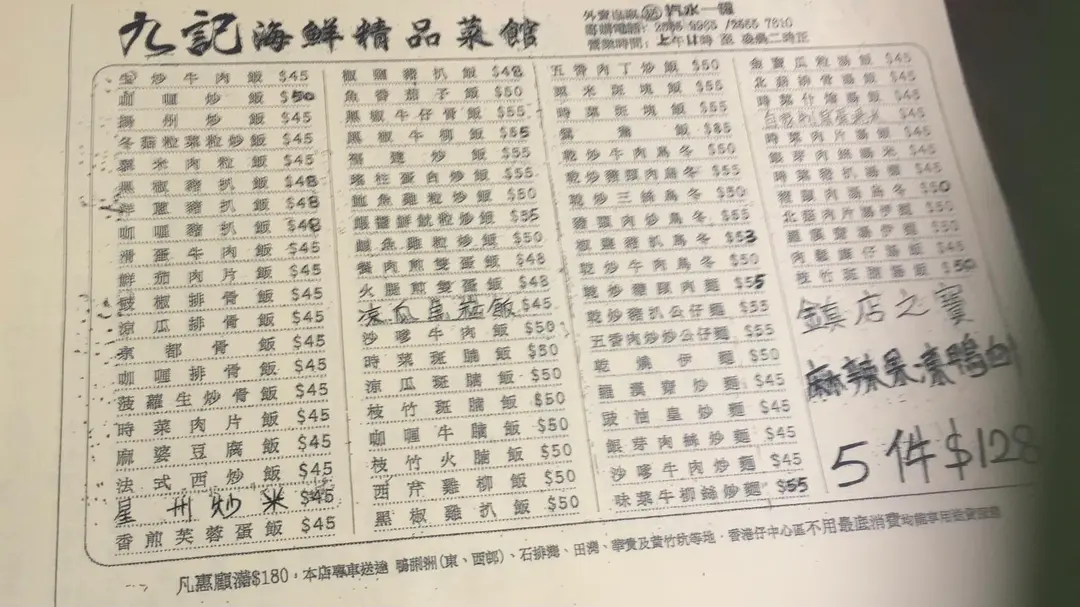 九記海鮮精品菜館
外賣自取送汽水一罐
訂購電話: 2555 9985 /2555 7810
營業時間: 上午11時 至 晚上二時正
生炒牛肉飯 $45
咖喱炒飯 $50
揚州炒飯 $45
冬菇粒菜粒炒飯 $45
粟米肉粒飯 $45
黑椒豬扒飯 $48
洋蔥豬扒飯 $48
咖喱豬扒飯 $48
滑蛋牛肉飯 $45
鮮茄肉片飯 $45
豉椒排骨飯 $45
涼瓜排骨飯 $45
京都骨飯 $45
咖喱排骨飯 $45
菠蘿生炒骨飯 $45
時菜肉片飯 $45
麻婆豆腐飯 $45
法式西炒飯 $45
星州炒米 $45
香煎芙蓉蛋飯 $45
椒鹽豬扒飯 $48
魚香茄子飯 $50
黑椒牛仔骨飯 $55
黑椒牛柳飯 $55
福建炒飯 $55
瑤柱蛋白炒飯 $55
鹹魚雞粒炒飯 $50
鮑魚雞粒炒飯 $50
餐肉煎雙蛋飯 $48
火腿煎雙蛋飯 $48
涼瓜飯 $45
沙嗲牛肉飯 $50
時菜斑腩飯 $50
涼瓜斑腩飯 $50
枝竹斑腩飯 $50
咖喱牛腩飯 $50
枝竹火腩飯 $50
西芹雞柳飯 $50
黑椒雞扒飯 $50
五香肉丁炒飯 $50
粟米斑塊飯 $55
時菜斑塊飯 $55
飯 $85
乾炒牛肉烏冬 $50
乾炒豬頸肉烏冬 $55
乾炒三絲烏冬 $50
豬頸肉炒烏冬 $55
椒鹽豬扒烏冬 $53
乾炒牛肉烏冬 $50
乾炒豬頸肉麵 $55
乾炒豬扒公仔麵 $55
五香肉炒炒公仔麵 $55
乾燒伊麵 $50
羅漢齋炒麵 $45
豉油皇炒麵 $45
銀芽肉絲炒麵 $45
沙嗲牛肉炒麵 $45
味菜牛柳絲炒麵 $55
湯飯 $45
北菇排骨湯飯 $45
時菜什燴湯飯 $45
$45
時菜肉片湯飯 $45
銀芽肉絲湯米 $45
時菜豬扒湯麵 $45
豬頸肉湯烏冬 $50
北菇肉片湯伊麵 $50
羅漢齋湯伊麵 $50
$45
枝竹斑腩湯飯 $50
鎮店之寶
麻辣鴨
5件$128
凡惠顧滿$180,本店專車送達 鴨脷洲(東、西邨)、石排灣、田灣、華貴及黃竹坑等地,香港仔中心區不用最底消費均能享用送貨服務